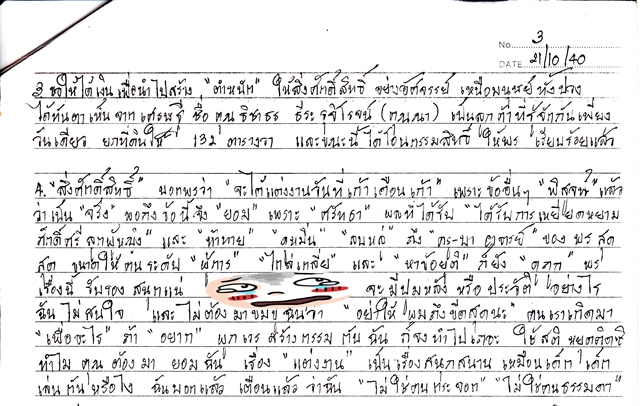 No. 3
DATE 21/10/40
3 ขอให้ได้เงินเพื่อนำไปสร้าง "ตำหนัก" ให้สิ่งศักดิ์สิทธิ์ อย่างอัศจรรย์ เหนือมนุษย์ทั้งปวง
ได้ทันตาเห็น จากเศรษฐี ชื่อ คุณ ธีระ เป็นลูกค้าที่รู้จักกันเพียง
วันเดียว ยกที่ดินให้ 132 ตารางวา และขณะนี้ ได้โอนกรรมสิทธิ์ ให้พร เรียบร้อยแล้ว
4. "สิ่งศักดิ์สิทธิ์" บอกพรว่า "จะได้แต่งงานวันที่เก้า เดือนเก้า" เพราะข้ออื่นๆ "พิสูจน์" แล้ว
ว่าเป็น "จริง" พอถึงข้อนี้ จึง "ยอม" เพราะ "ศรัทธา" ผลที่ได้รับ "ได้รับการเหยียดหยาม
ศักดิ์ศรี ลูกผู้หญิง" และ "ท้าทาย" "ลบหลู่" ถึง ของ พร สุด
สุด ขนาดให้คนระดับ "ผู้การ" "ไกล่เกลี่ย" และ "หาข้อยุติ" ก็ยัง พร
เรื่องนี้ รับรอง สนุกแน่ จะมีปมหลัง หรือ ประวัติ อย่างไร
ฉันไม่สนใจ และไม่ต้องมา ฉันว่า "อย่าให้ผมถึงขีดสุดนะ" คนเราเกิดมา
"เพื่ออะไร" ถ้า "อยาก" สร้างกรรม กับฉัน ก็จงทำไปเถอะ ใช้สติ หยุดคิดซิ
ทำไม คุณต้องมา ยอมฉัน เรื่อง "แต่งงาน" เป็นเรื่องสนุกสนาน เหมือนเด็กๆ
เล่นกันหรือไง ฉันบอกแล้ว เตือนแล้ว ว่าฉัน "ไม่ใช่คนกระจอก" "ไม่ใช่คนธรรมดา"